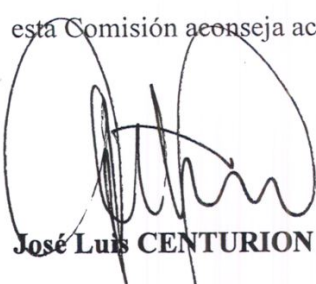 esta Comisión aconseja ac
José Luis CENTURION